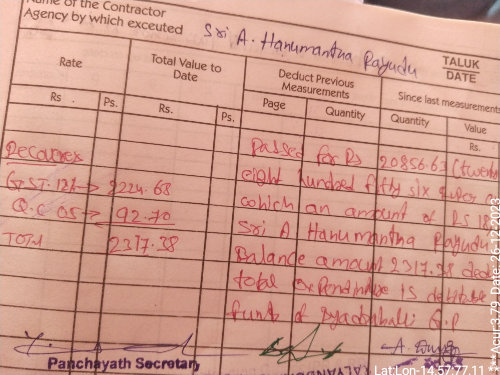 Name of the Contractor
Agency by which exceuted Sri A. Hanumantha Rayudu
TALUK
DATE
Rate
Total Value to Date
Deduct Previous Measurements
Since last measurements
Rs
Ps.
Rs.
Ps.
Page
Quantity
Quantity
Value
Rs.
Passed for Rs 20856.63 (twent
Recoveries
eight hundred fifty six
GST 12% → 2224.68
which an amount of Rs 185
Q.C 05 → 92.70
Sri A Hanumantha Rayudu
Total 2317.38
Balance amount 2317.38 ded
total expenditure is debitable
fund of G.P
Panchayath Secretary
Lat Lon-14.57,77.11
Acur:3.79, Date: 26-12-2023